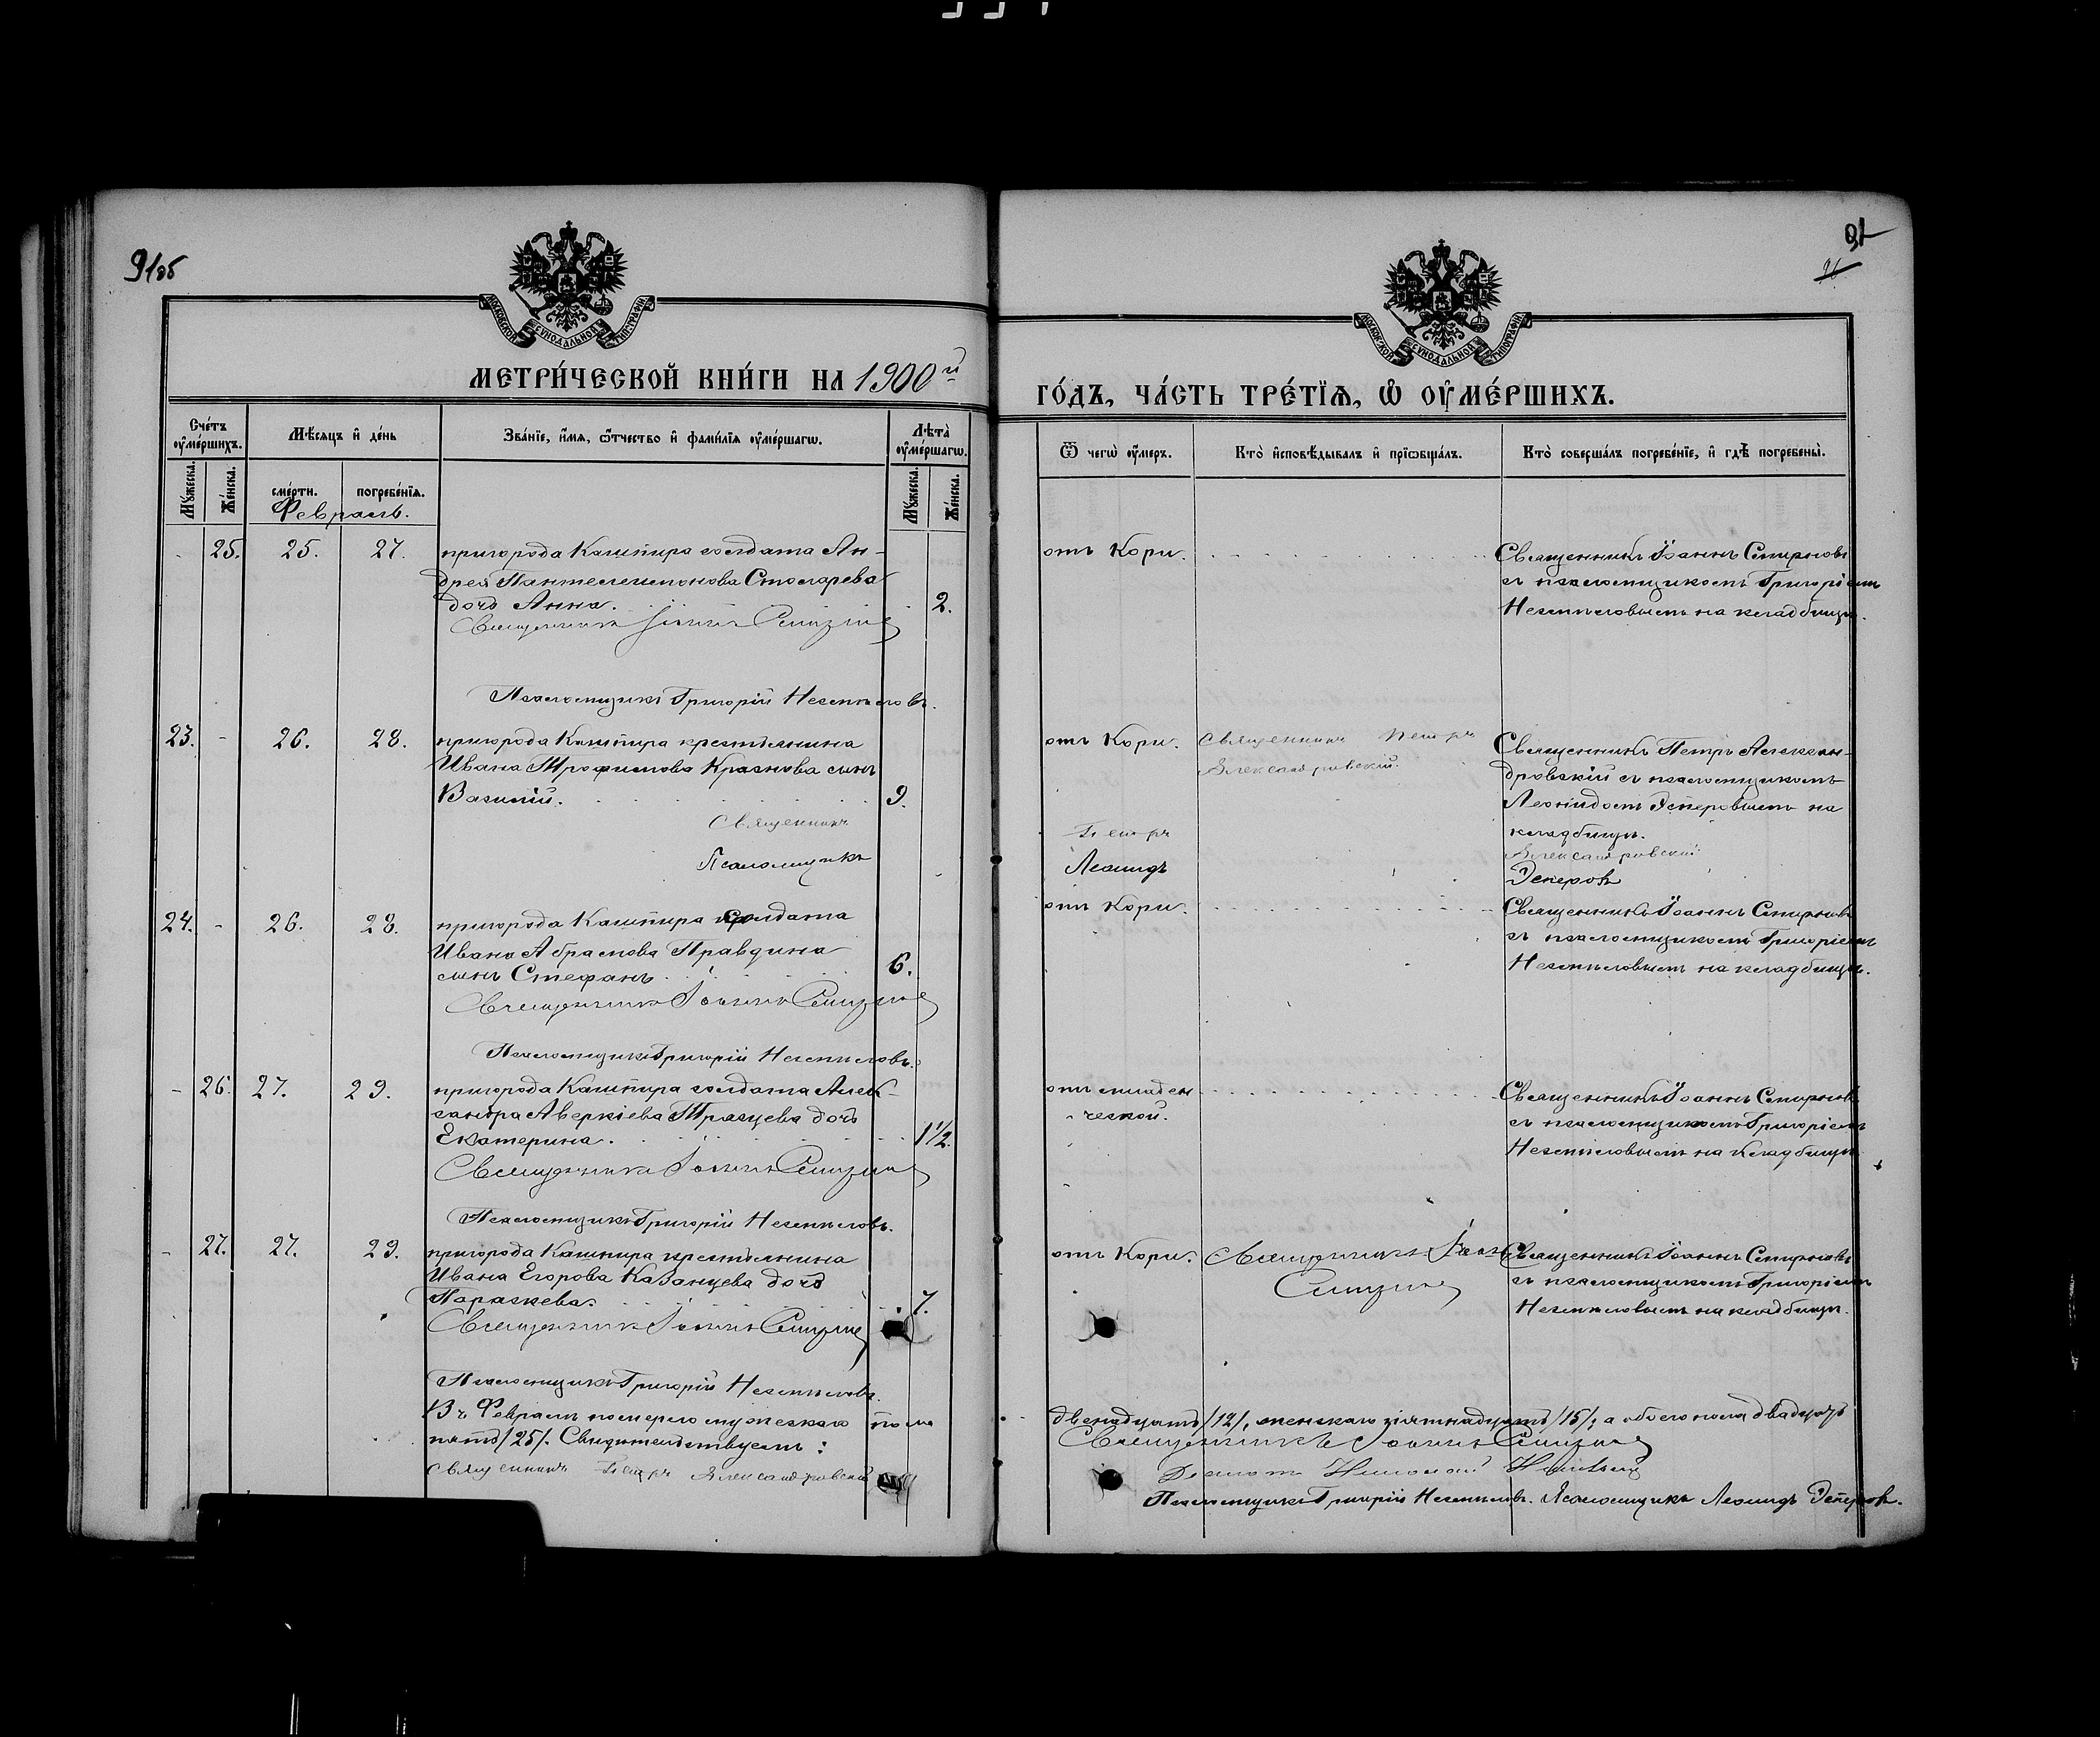 91об
91
МОСКОВСКОЙ СУНОДАЛЬНОЙ ТИПОГРАФІИ
МОСКОВСКОЙ СУНОДАЛЬНОЙ ТИПОГРАФІИ
МЕТРИ́ЧЕСКОЙ КНИ́ГИ НА 1900й
ГО́ДЪ, ЧА́СТЬ ТРЕ́ТЇѦ, Ѡ ОУМЕ́РШИХЪ.
Сче́тъ оумершихъ.
Мѣсяцъ и де́нь
Зва́нїе, и́мя, ѻ́тчество и фами́лїя оуме́ршагѡ.
Лѣта̀ оуме́ршагѡ.
Ѿ чегѡ̀ оу́меръ.
Кто̀ исповѣ́дывалъ и прїѡбща́лъ.
Кто̀ соверша́лъ погребе́нїе, и гдѣ̀ погребены̀.
Мꙋжеска.
Же́нска.
сме́рти.
погребе́нїя.
Мꙋжеска.
Же́нска.
Февраль.
25. 25. 27. пригорода Кашпира солдата Ан-
дрея Пантелеимонова Столярева
дочь Анна. 2.
Священникъ Іоаннъ Смирновъ
Псаломщикъ Григорій Несмѣловъ.
отъ Кори.
Священникъ Іоаннъ Смирновъ
съ псаломщикомъ Григоріемъ
Несмѣловымъ на кладбищѣ.
23. - 26. 28. пригорода Кашпира крестьянина
Ивана Трофимова Краснова сынъ
Василій. 9.
Священникъ Петръ Александровскій
Псаломщикъ Леонидъ Эсперовъ
отъ Кори.
Священникъ Петръ
Александровскій.
Священникъ Петръ Алексан-
дровскій съ псаломщикомъ
Леонидомъ Эсперовымъ на
кладбищѣ.
24. - 26. 28. пригорода Кашпира солдата
Ивана Абрамова Правдина
сынъ Стефанъ. 6.
Священникъ Іоаннъ Смирновъ
Псаломщикъ Григорій Несмѣловъ.
отъ Кори.
Священникъ Іоаннъ Смирновъ
съ псаломщикомъ Григоріемъ
Несмѣловымъ на кладбищѣ.
- 26. 27. 29. пригорода Кашпира солдата Алек-
сандра Аверкіева дочь
Екатерина. 1½.
Священникъ Іоаннъ Смирновъ
Псаломщикъ Григорій Несмѣловъ.
отъ младен-
ческой.
Священникъ Іоаннъ Смирновъ
съ псаломщикомъ Григоріемъ
Несмѣловымъ на кладбищѣ.
- 27. 27. 29. пригорода Кашпира крестьянина
Ивана Егорова Казанцева дочь
Параскева. 7.
Священникъ Іоаннъ Смирновъ
Псаломщикъ Григорій Несмѣловъ.
отъ Кори.
Священникъ Іоаннъ
Смирновъ
Священникъ Іоаннъ Смирновъ
съ псаломщикомъ Григоріемъ
Несмѣловымъ на кладбищѣ.
Въ Февралѣ померло мужескаго пола двѣнадцать /12/, женскаго пятнадцать /15/, а обоего пола двадцать
пять /25/. Свидѣтельствуемъ:
Священникъ Іоаннъ Смирновъ
Священникъ Петръ Александровскій
Николай
Псаломщикъ Григорій Несмѣловъ. Псаломщикъ Леонидъ Эсперовъ.